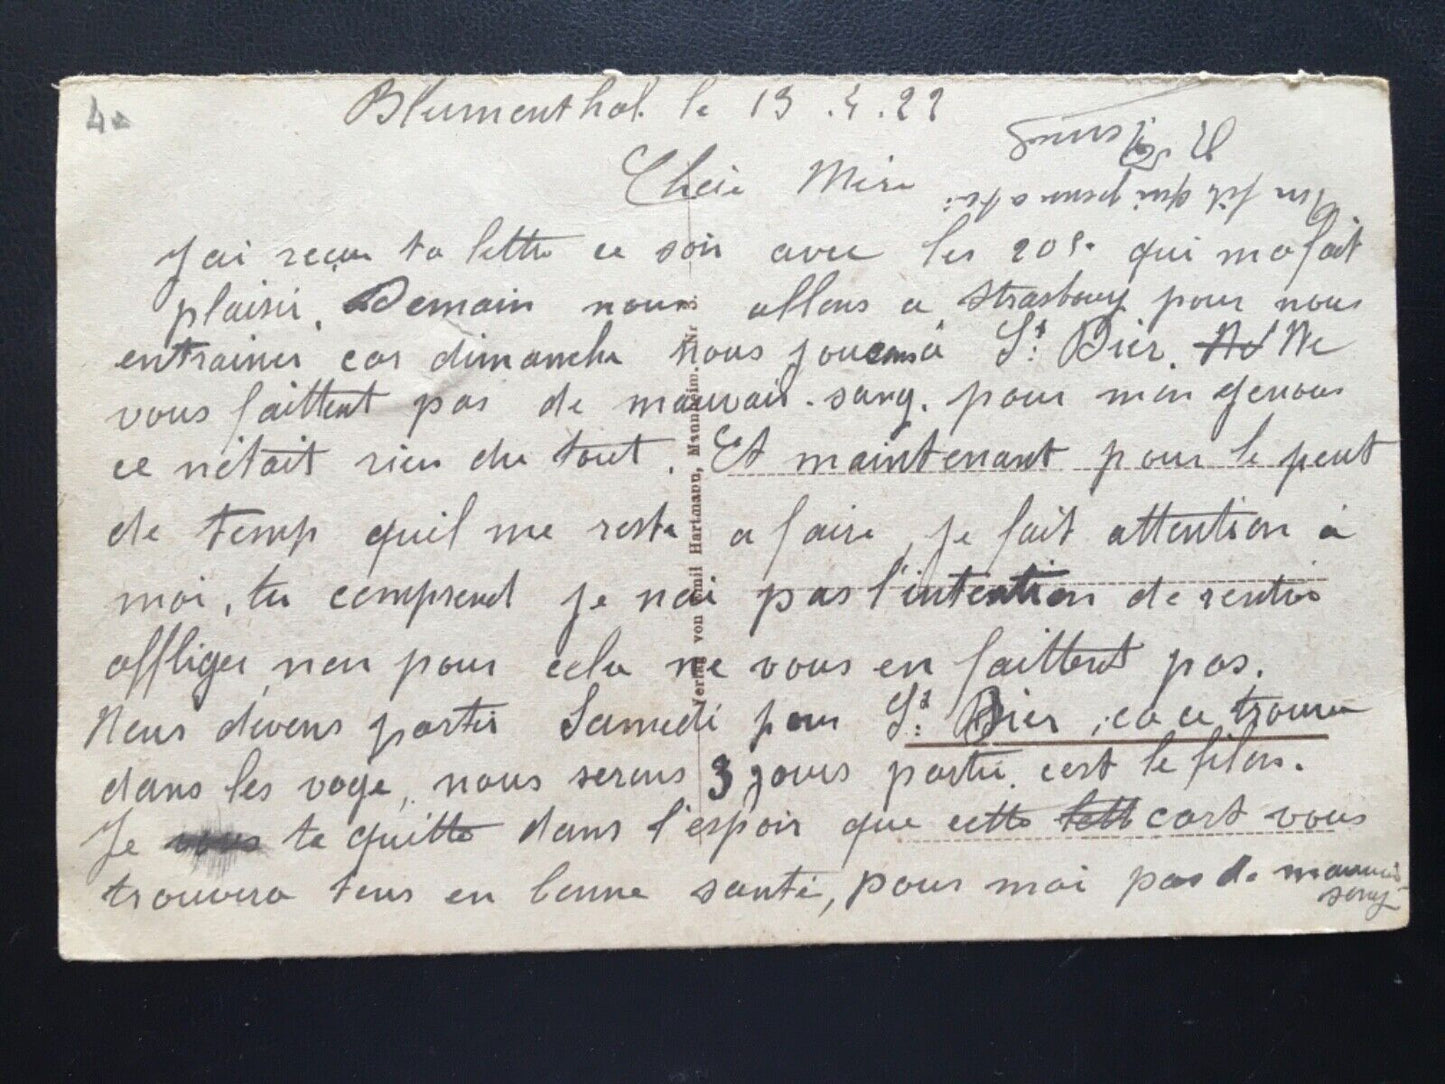 4
Blumenthal. le 13.4.22
Chère Mère
J'ai reçu ta lettre ce soir avec les 20f. qui m'a fait
plaisir. Demain nous allons a Strasbourg pour nous
entrainer car dimanche nous jouons à St: Dier. Ne
vous faittent pas de mauvais. sang. pour mon genoux
ce n'était rien du tout. Et maintenant pour le peut
de temp quil me reste a faire, je fait attention à
moi, tu comprend je n'ai pas l'intention de rentrer
affliger, non pour cela ne vous en faittent pas.
Nous devons partir Samedi pour St: Dier, ca ce trouve
dans les voge, nous serons 3 jours partir. c'est le filon.
Je te quitte dans l'espoir que cette cart vous
trouvera tous en bonne santé, pour moi pas de mauvais
sang
Ton fils qui pense a toi.
Verlag von Emil Hartmann, Mannheim. Nr 3.